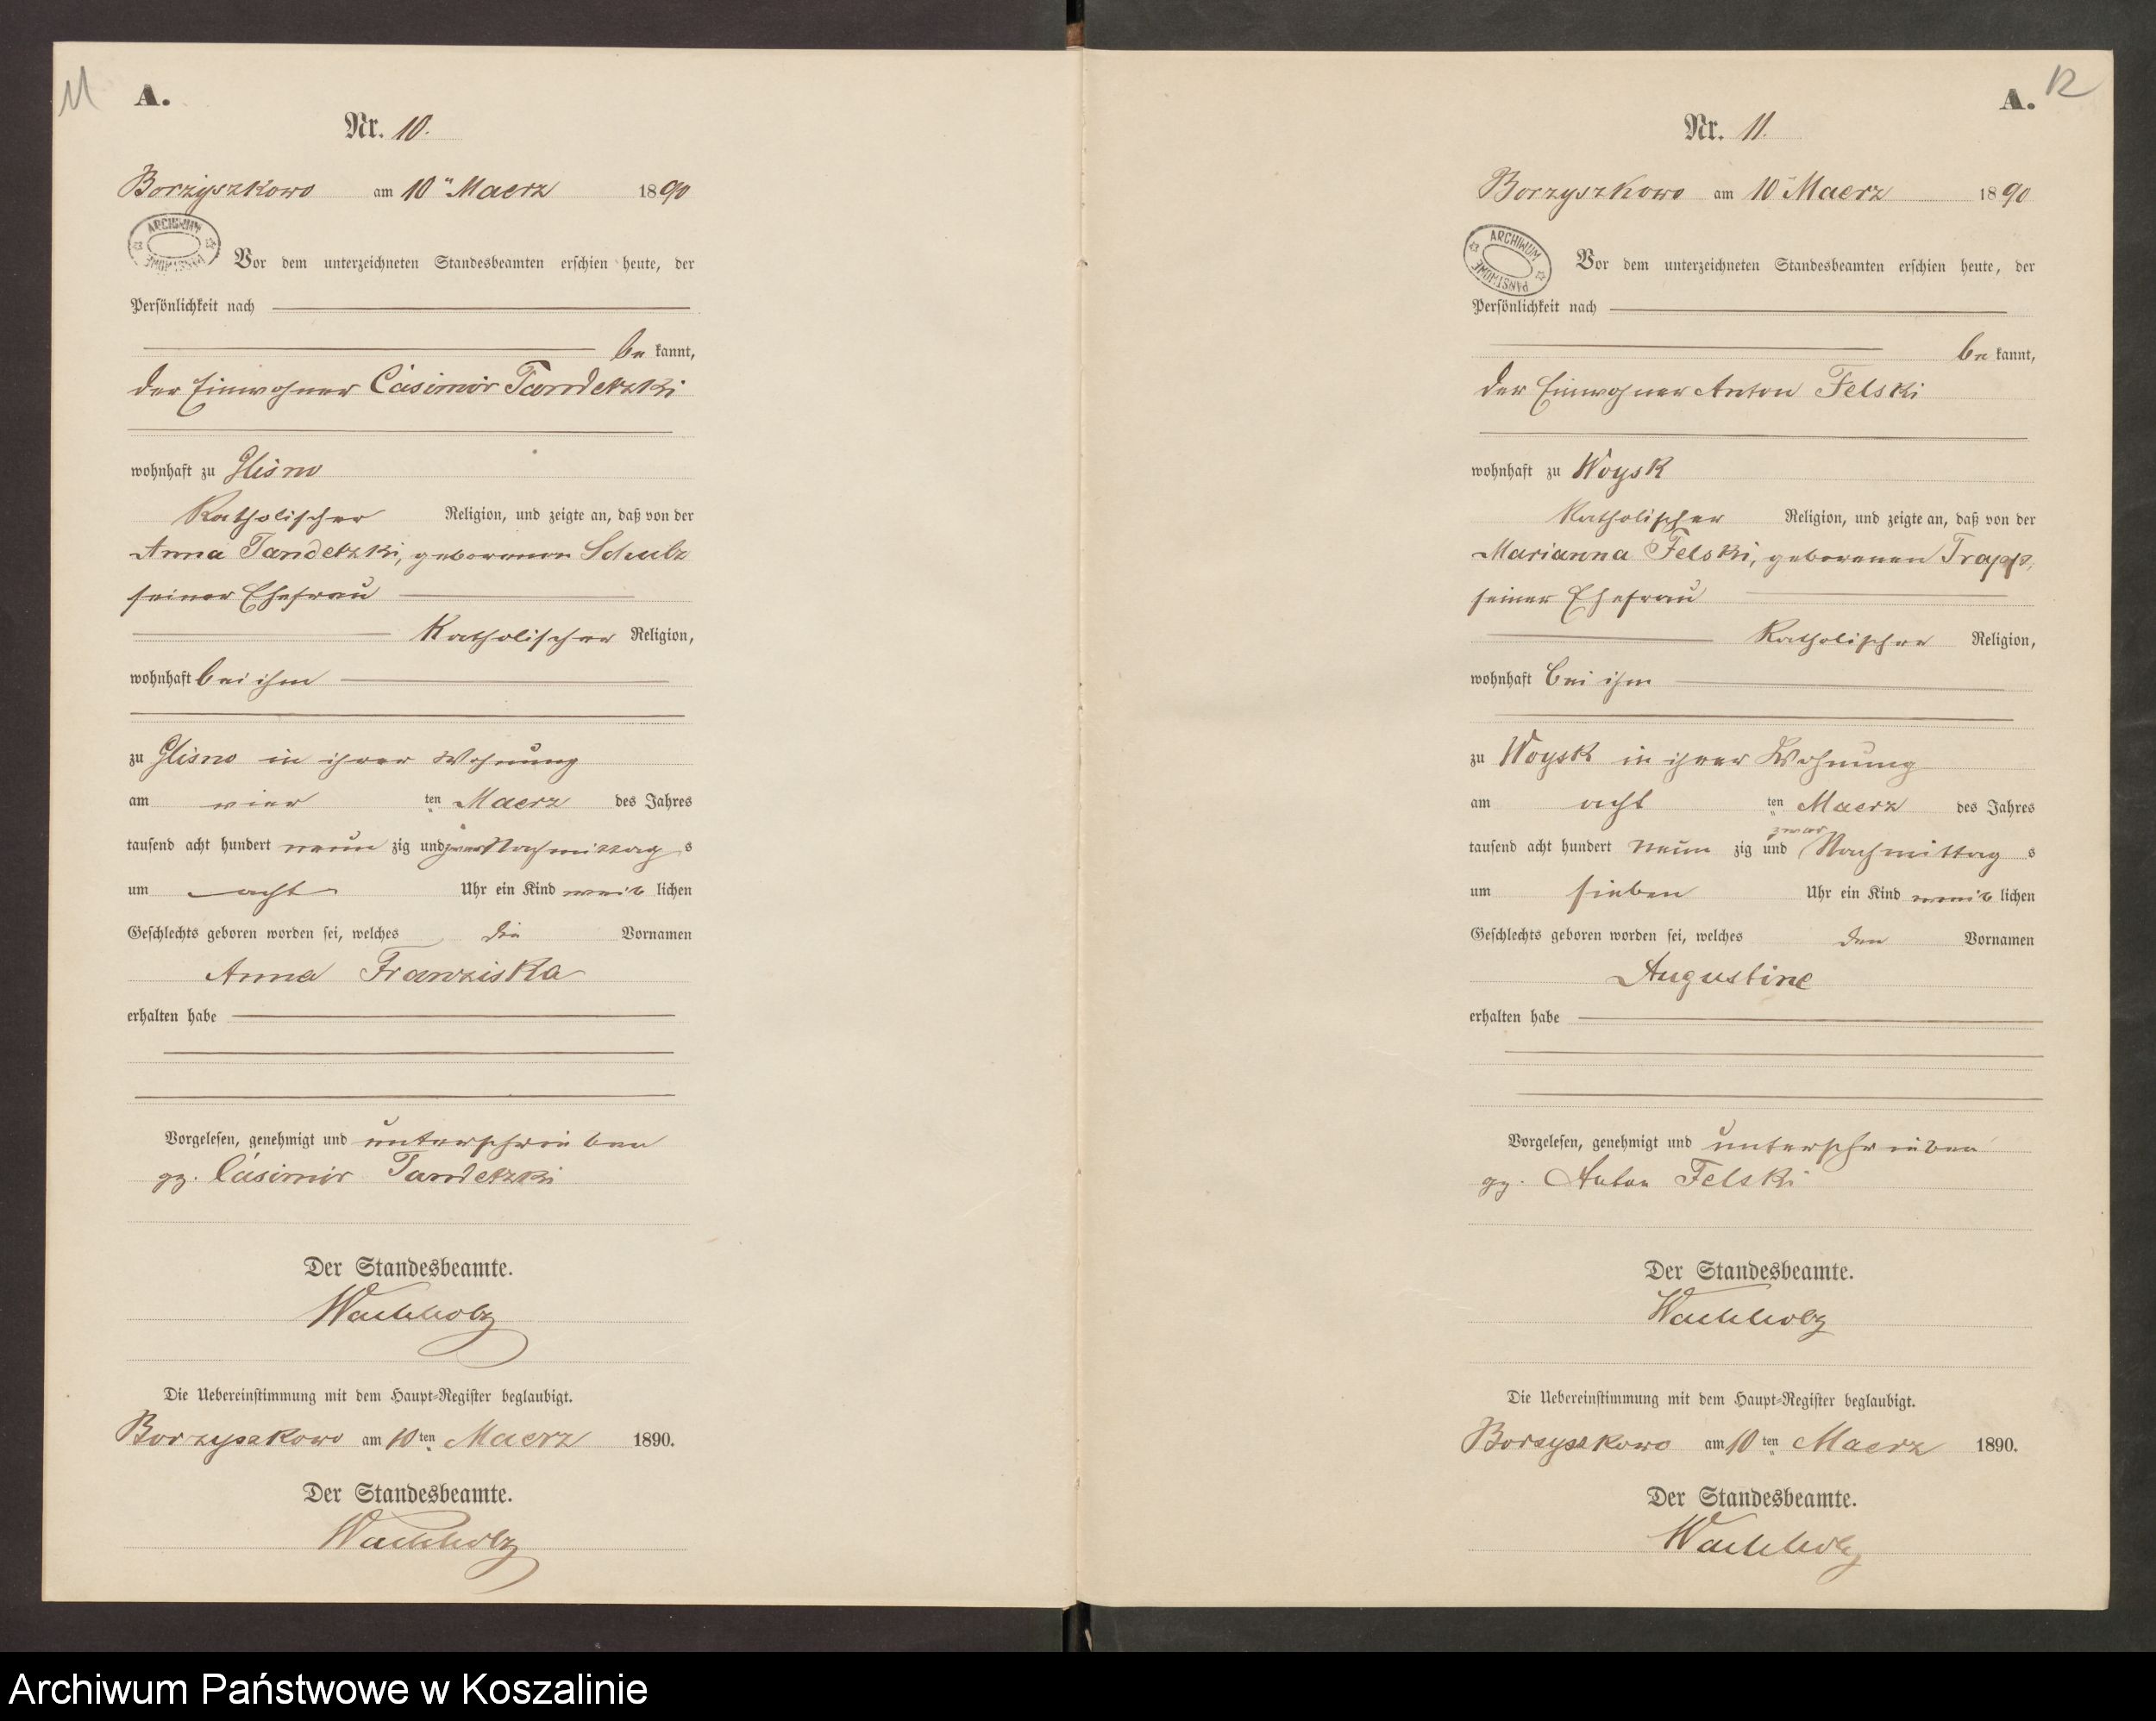 11
A.
Nr. 10.
Borzyszkowo am 10ten Maerz 1890
ARCHIWUM PAŃSTWOWE
Vor dem unterzeichneten Standesbeamten erschien heute, der
Persönlichkeit nach
be kannt,
der Einwohner Casimir Tandetzki
wohnhaft zu Glisno
Katholischer Religion, und zeigte an, daß von der
Anna Tandetzki, geborenen Schulz
seiner Ehefrau
Katholischer Religion,
wohnhaft bei ihm
zu Glisno in ihrer Wohnung
am vier ten Maerz des Jahres
tausend acht hundert neun zig und zwar Nachmittag s
um acht Uhr ein Kind weib lichen
Geschlechts geboren worden sei, welches die Vornamen
Anna Franziska
erhalten habe
Vorgelesen, genehmigt und unterschrieben
gz. Casimir Tandetzki
Der Standesbeamte.
Wachholz
Die Uebereinstimmung mit dem Haupt-Register beglaubigt.
Borzyszkowo am 10 ten Maerz 1890.
Der Standesbeamte.
Wachholz
12
A.
Nr. 11.
Borzyszkowo am 10ten Maerz 1890
ARCHIWUM PAŃSTWOWE
Vor dem unterzeichneten Standesbeamten erschien heute, der
Persönlichkeit nach
be kannt,
der Einwohner Anton Felski
wohnhaft zu Woysk
Katholischer Religion, und zeigte an, daß von der
Marianna Felski, geborenen Trapp,
seiner Ehefrau
Katholischer Religion,
wohnhaft bei ihm
zu Woysk in ihrer Wohnung
am acht ten Maerz des Jahres
tausend acht hundert neun zig und zwar Nachmittag s
um sieben Uhr ein Kind weib lichen
Geschlechts geboren worden sei, welches den Vornamen
Augustine
erhalten habe
Vorgelesen, genehmigt und unterschrieben
gz. Anton Felski
Der Standesbeamte.
Wachholz
Die Uebereinstimmung mit dem Haupt-Register beglaubigt.
Borzyszkowo am 10 ten Maerz 1890.
Der Standesbeamte.
Wachholz
Archiwum Państwowe w Koszalinie